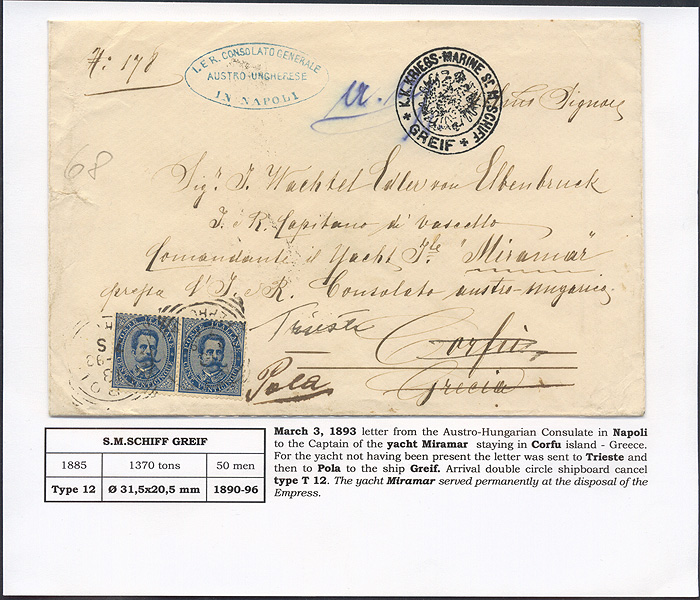 N: 178
I. E R. CONSOLATO GENERALE
AUSTRO-UNGHERESE
IN NAPOLI
* K.K. KRIEGS-MARINE Sr. M. SCHIFF *
GREIF
Signore
68
Sigr. J. Wachtel Edler von Elbenbruck
I. e R. Capitano di vascello
Comandante il Yacht Ile "Miramar"
presso l'I. e R. Consolato austro-ungarico
Trieste
Corfù
Pola
Grecia
POSTE ITALIANE
CENT. VENTICINQUE
POSTE ITALIANE
CENT. VENTICINQUE
S.M.SCHIFF GREIF
1885 1370 tons 50 men
Type 12 Ø 31,5x20,5 mm 1890-96
March 3, 1893 letter from the Austro-Hungarian Consulate in Napoli
to the Captain of the yacht Miramar staying in Corfu island - Greece.
For the yacht not having been present the letter was sent to Trieste and
then to Pola to the ship Greif. Arrival double circle shipboard cancel
type T 12. The yacht Miramar served permanently at the disposal of the
Empress.